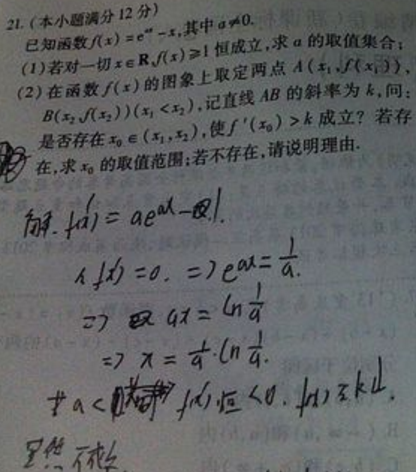 21.(本小题满分12分)
已知函数f(x)=e^{ax}-x,其中a≠0.
(1)若对一切x∈R,f(x)≥1恒成立,求a的取值集合;
(2)在函数f(x)的图象上取定两点A(x₁,f(x₁)),
B(x₂,f(x₂))(x₁<x₂),记直线AB的斜率为k,问:
是否存在x₀∈(x₁,x₂),使f′(x₀)>k成立?若存
在,求x₀的取值范围;若不存在,请说明理由.
解. f'(x)=ae^{ax}-1.
令f'(x)=0. ⇒e^{ax}=1/a.
⇒ ax=ln 1/a
⇒ x=1/a·ln 1/a.
若a< f'(x)恒<0. f(x)在R↓.
显然不成立.